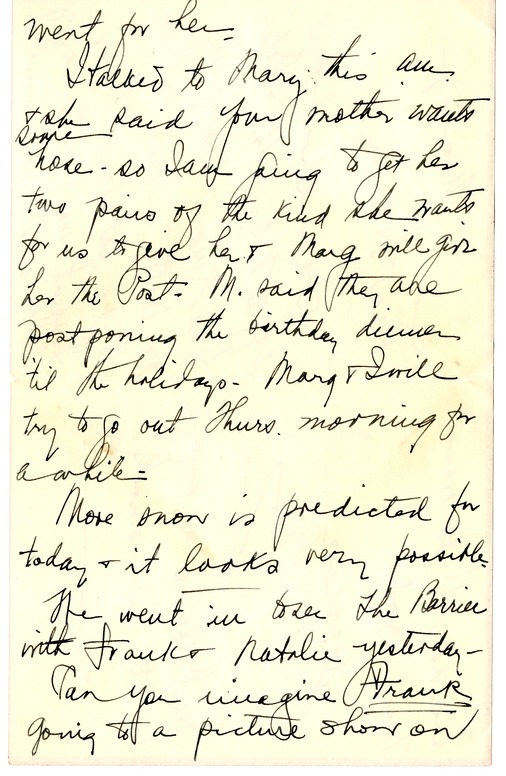 went for her-
I talked to Marg this am.
& she said your mother wants
some
hose - so I am going to get her
two pairs of the kind she wants
for us to give her & Marg will give
her the Post. M. said they are
postponing the birthday dinner
'til the holidays - Marg & I will
try to go out Thurs. morning for
a while -
More snow is predicted for
today & it looks very possible.
We went in to see The Barrier
with Frank & Natalie yesterday -
Can you imagine Frank
going to a picture show on